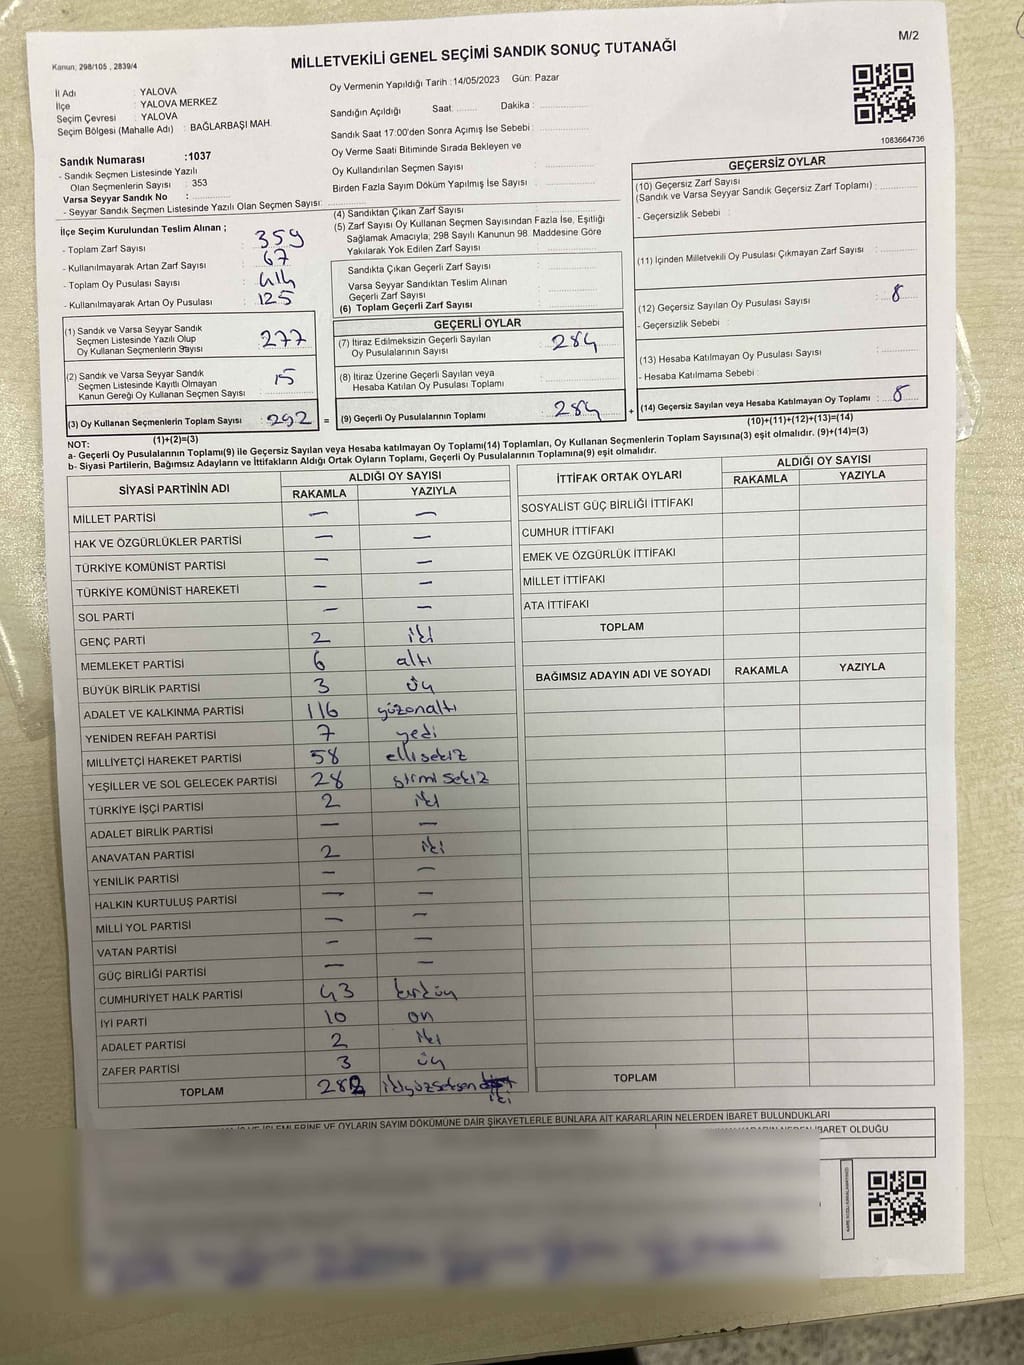 M/2
Kanun; 298/105 , 2839/4
MİLLETVEKİLİ GENEL SEÇİMİ SANDIK SONUÇ TUTANAĞI
İl Adı : YALOVA
İlçe : YALOVA MERKEZ
Seçim Çevresi : YALOVA
Seçim Bölgesi (Mahalle Adı) : BAĞLARBAŞI MAH.
Oy Vermenin Yapıldığı Tarih : 14/05/2023 Gün: Pazar
Sandığın Açıldığı Saat: ........ Dakika : ................
Sandık Saat 17:00'den Sonra Açımış İse Sebebi : ................
Oy Verme Saati Bitiminde Sırada Bekleyen ve
Oy Kullandırılan Seçmen Sayısı : ................
Birden Fazla Sayım Döküm Yapılmış İse Sayısı : ................
1083664736
Sandık Numarası :1037
- Sandık Seçmen Listesinde Yazılı
Olan Seçmenlerin Sayısı : 353
Varsa Seyyar Sandık No : ................
- Seyyar Sandık Seçmen Listesinde Yazılı Olan Seçmen Sayısı: ................
İlçe Seçim Kurulundan Teslim Alınan ;
- Toplam Zarf Sayısı : 359
- Kullanılmayarak Artan Zarf Sayısı : 67
- Toplam Oy Pusulası Sayısı : 414
- Kullanılmayarak Artan Oy Pusulası : 125
(1) Sandık ve Varsa Seyyar Sandık
Seçmen Listesinde Yazılı Olup
Oy Kullanan Seçmenlerin Sayısı : 277
(2) Sandık ve Varsa Seyyar Sandık
Seçmen Listesinde Kayıtlı Olmayan
Kanun Gereği Oy Kullanan Seçmen Sayısı : 15
(3) Oy Kullanan Seçmenlerin Toplam Sayısı : 292 =
(1)+(2)=(3)
(4) Sandıktan Çıkan Zarf Sayısı : ................
(5) Zarf Sayısı Oy Kullanan Seçmen Sayısından Fazla İse, Eşitliği
Sağlamak Amacıyla; 298 Sayılı Kanunun 98. Maddesine Göre
Yakılarak Yok Edilen Zarf Sayısı : ................
Sandıkta Çıkan Geçerli Zarf Sayısı : ................
Varsa Seyyar Sandıktan Teslim Alınan
Geçerli Zarf Sayısı : ................
(6) Toplam Geçerli Zarf Sayısı : ................
GEÇERLİ OYLAR
(7) İtiraz Edilmeksizin Geçerli Sayılan
Oy Pusulalarının Sayısı : 284
(8) İtiraz Üzerine Geçerli Sayılan veya
Hesaba Katılan Oy Pusulası Toplamı : ................
(9) Geçerli Oy Pusulalarının Toplamı : 284 +
GEÇERSİZ OYLAR
(10) Geçersiz Zarf Sayısı
(Sandık ve Varsa Seyyar Sandık Geçersiz Zarf Toplamı) : ................
- Geçersizlik Sebebi :
(11) İçinden Milletvekili Oy Pusulası Çıkmayan Zarf Sayısı : ................
(12) Geçersiz Sayılan Oy Pusulası Sayısı : 8
- Geçersizlik Sebebi :
(13) Hesaba Katılmayan Oy Pusulası Sayısı : ................
- Hesaba Katılmama Sebebi :
(14) Geçersiz Sayılan veya Hesaba Katılmayan Oy Toplamı : 8
(10)+(11)+(12)+(13)=(14)
NOT:
a- Geçerli Oy Pusulalarının Toplamı(9) ile Geçersiz Sayılan veya Hesaba katılmayan Oy Toplamı(14) Toplamları, Oy Kullanan Seçmenlerin Toplam Sayısına(3) eşit olmalıdır. (9)+(14)=(3)
b- Siyasi Partilerin, Bağımsız Adayların ve İttifakların Aldığı Ortak Oyların Toplamı, Geçerli Oy Pusulalarının Toplamına(9) eşit olmalıdır.
SİYASİ PARTİNİN ADI ALDIĞI OY SAYISI
RAKAMLA YAZIYLA
MİLLET PARTİSİ — —
HAK VE ÖZGÜRLÜKLER PARTİSİ — —
TÜRKİYE KOMÜNİST PARTİSİ — —
TÜRKİYE KOMÜNİST HAREKETİ — —
SOL PARTİ — —
GENÇ PARTİ 2 iki
MEMLEKET PARTİSİ 6 altı
BÜYÜK BİRLİK PARTİSİ 3 üç
ADALET VE KALKINMA PARTİSİ 116 yüzonaltı
YENİDEN REFAH PARTİSİ 7 yedi
MİLLİYETÇİ HAREKET PARTİSİ 58 ellisekiz
YEŞİLLER VE SOL GELECEK PARTİSİ 28 yirmi sekiz
TÜRKİYE İŞÇİ PARTİSİ 2 iki
ADALET BİRLİK PARTİSİ — —
ANAVATAN PARTİSİ 2 iki
YENİLİK PARTİSİ — —
HALKIN KURTULUŞ PARTİSİ — —
MİLLİ YOL PARTİSİ — —
VATAN PARTİSİ — —
GÜÇ BİRLİĞİ PARTİSİ — —
CUMHURİYET HALK PARTİSİ 43 kırküç
İYİ PARTİ 10 on
ADALET PARTİSİ 2 iki
ZAFER PARTİSİ 3 üç
TOPLAM 282 ikiyüzseksen
iki
İTTİFAK ORTAK OYLARI ALDIĞI OY SAYISI
RAKAMLA YAZIYLA
SOSYALİST GÜÇ BİRLİĞİ İTTİFAKI
CUMHUR İTTİFAKI
EMEK VE ÖZGÜRLÜK İTTİFAKI
MİLLET İTTİFAKI
ATA İTTİFAKI
TOPLAM
BAĞIMSIZ ADAYIN ADI VE SOYADI RAKAMLA YAZIYLA
TOPLAM
İŞLEMLERİNE VE OYLARIN SAYIM DÖKÜMÜNE DAİR ŞİKAYETLERLE BUNLARA AİT KARARLARIN NELERDEN İBARET BULUNDUKLARI
KARARIN NEDEN İBARET OLDUĞU